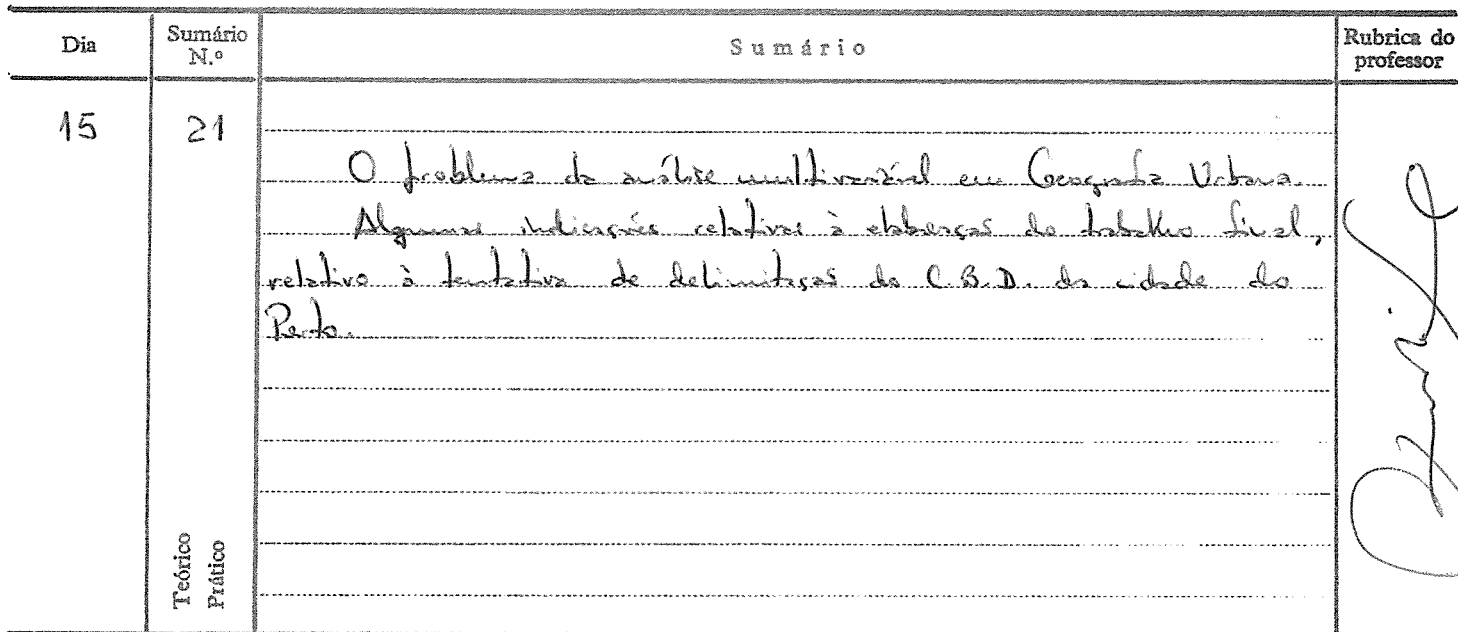 Dia
Sumário
N.º
Sumário
Rubrica do
professor
15
21
O problema da análise multivariável em Geografia Urbana.
Algumas indicações relativas à elaboração do trabalho final,
relativo à tentativa de delimitação do C.B.D. da cidade do
Porto.
Teórico
Prático